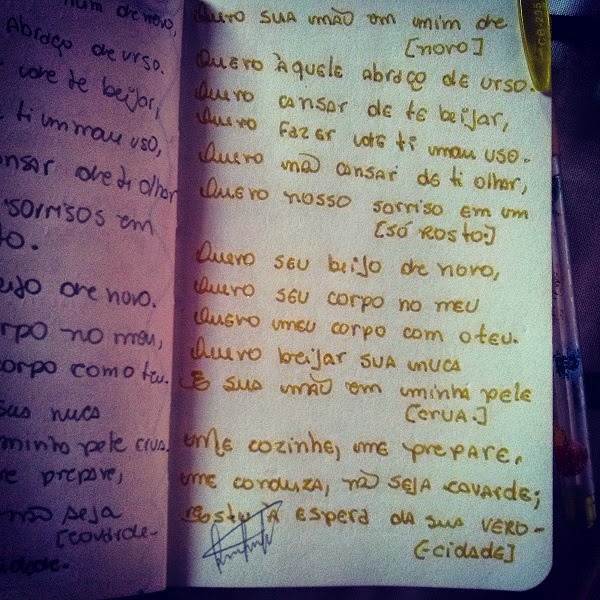 num de novo,
Abraço de urso.
te beijar,
ti um mau uso,
ansar de ti olhar
sorrisos em
to.
ijo de novo.
rpo no meu,
corpo com o teu.
sua nuca
minha pele crua.
e prepare,
não seja
[covarde-
cidade.
Quero sua mão em mim de
[novo]
Quero àquele abraço de urso.
Quero cansar de te beijar,
Quero fazer de ti um mau uso.
Quero não cansar de ti olhar,
Quero nosso sorriso em um
[só rosto.]
Quero seu beijo de novo,
Quero seu corpo no meu
Quero meu corpo com o teu.
Quero beijar sua nuca
E sua mão em minha pele
[crua.]
Me cozinhe, me prepare,
me conduza, não seja covarde;
estu à espera da sua vero-
[-cidade]